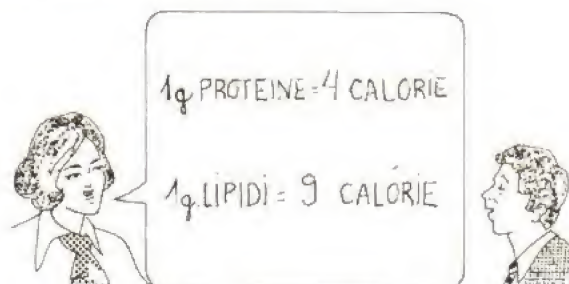 1g PROTEINE = 4 CALORIE
1g. LIPIDI = 9 CALORIE